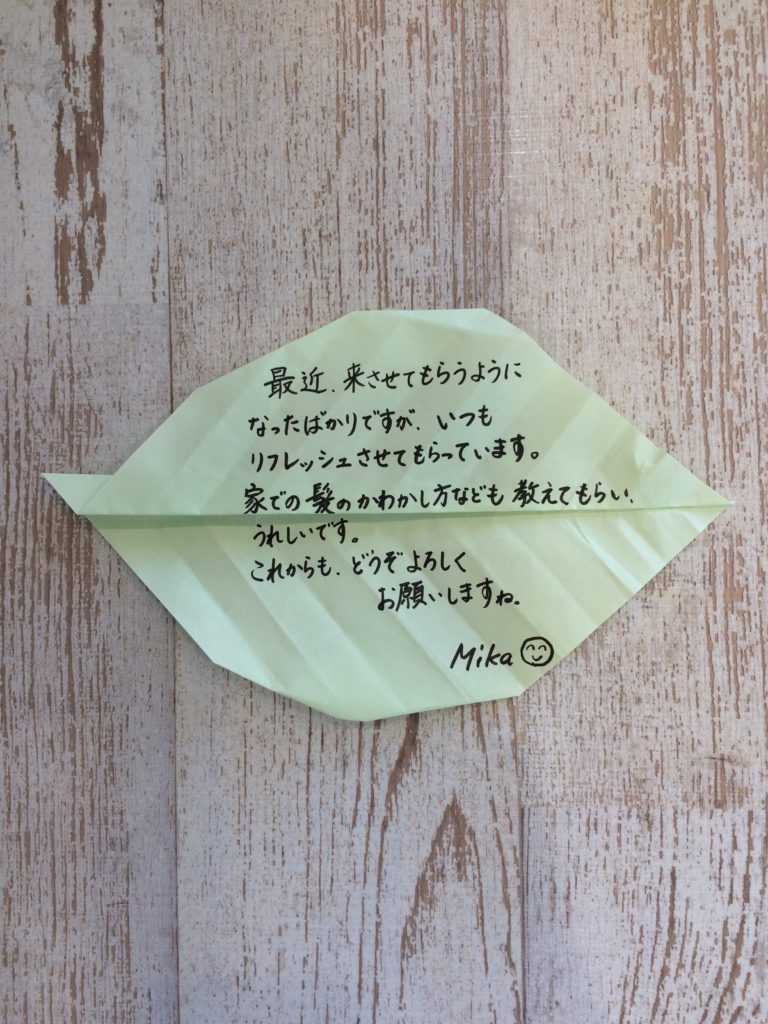 最近、来させてもらうように
なったばかりですが、いつも
リフレッシュさせてもらっています。
家での髪のかわかし方なども教えてもらい、
うれしいです。
これからも、どうぞよろしく
お願いしますね。
Mika